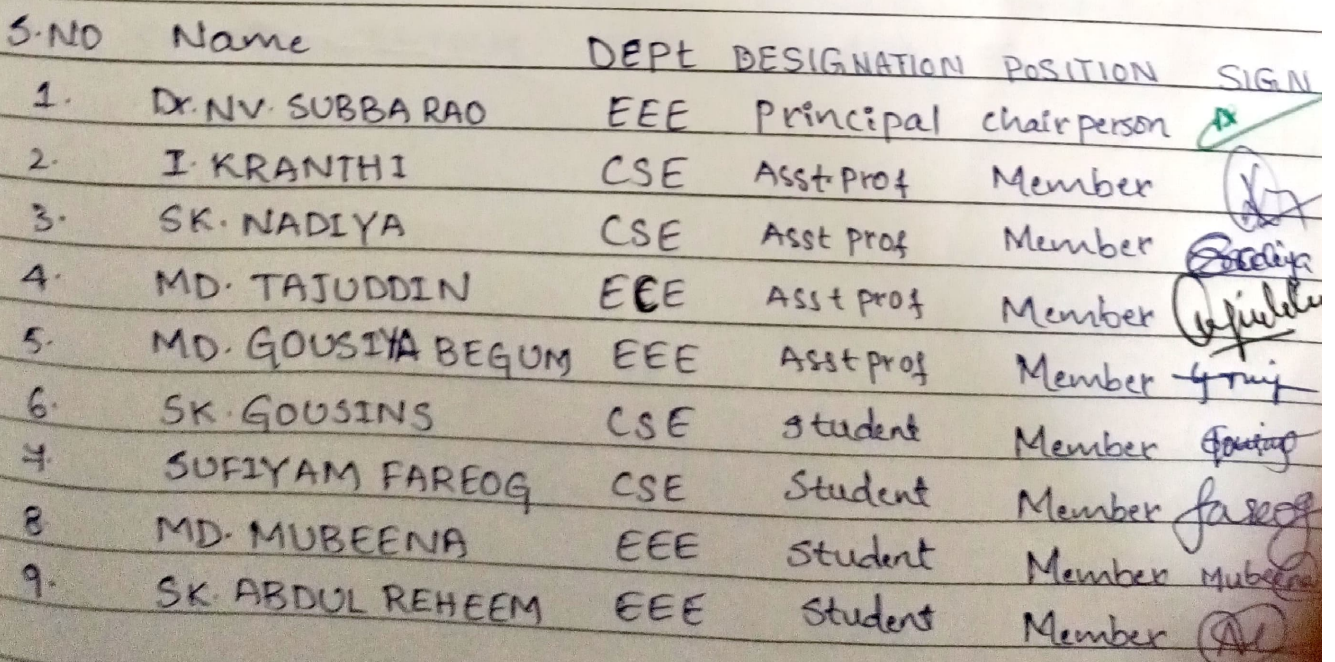 S.NO Name DEPt DESIGNATION POSITION SIGN
1. Dr. NV. SUBBA RAO EEE Principal chairperson
2. I. KRANTHI CSE Asst prof Member
3. SK. NADIYA CSE Asst prof Member
4. MD. TAJUDDIN ECE Asst prof Member
5. MD. GOUSIYA BEGUM EEE Asst prof Member
6. SK. GOUSINS CSE student Member
7. SUFIYAM FAREOG CSE Student Member fareog
8 MD. MUBEENA EEE Student Member Mubeena
9. SK. ABDUL REHEEM EEE Student Member